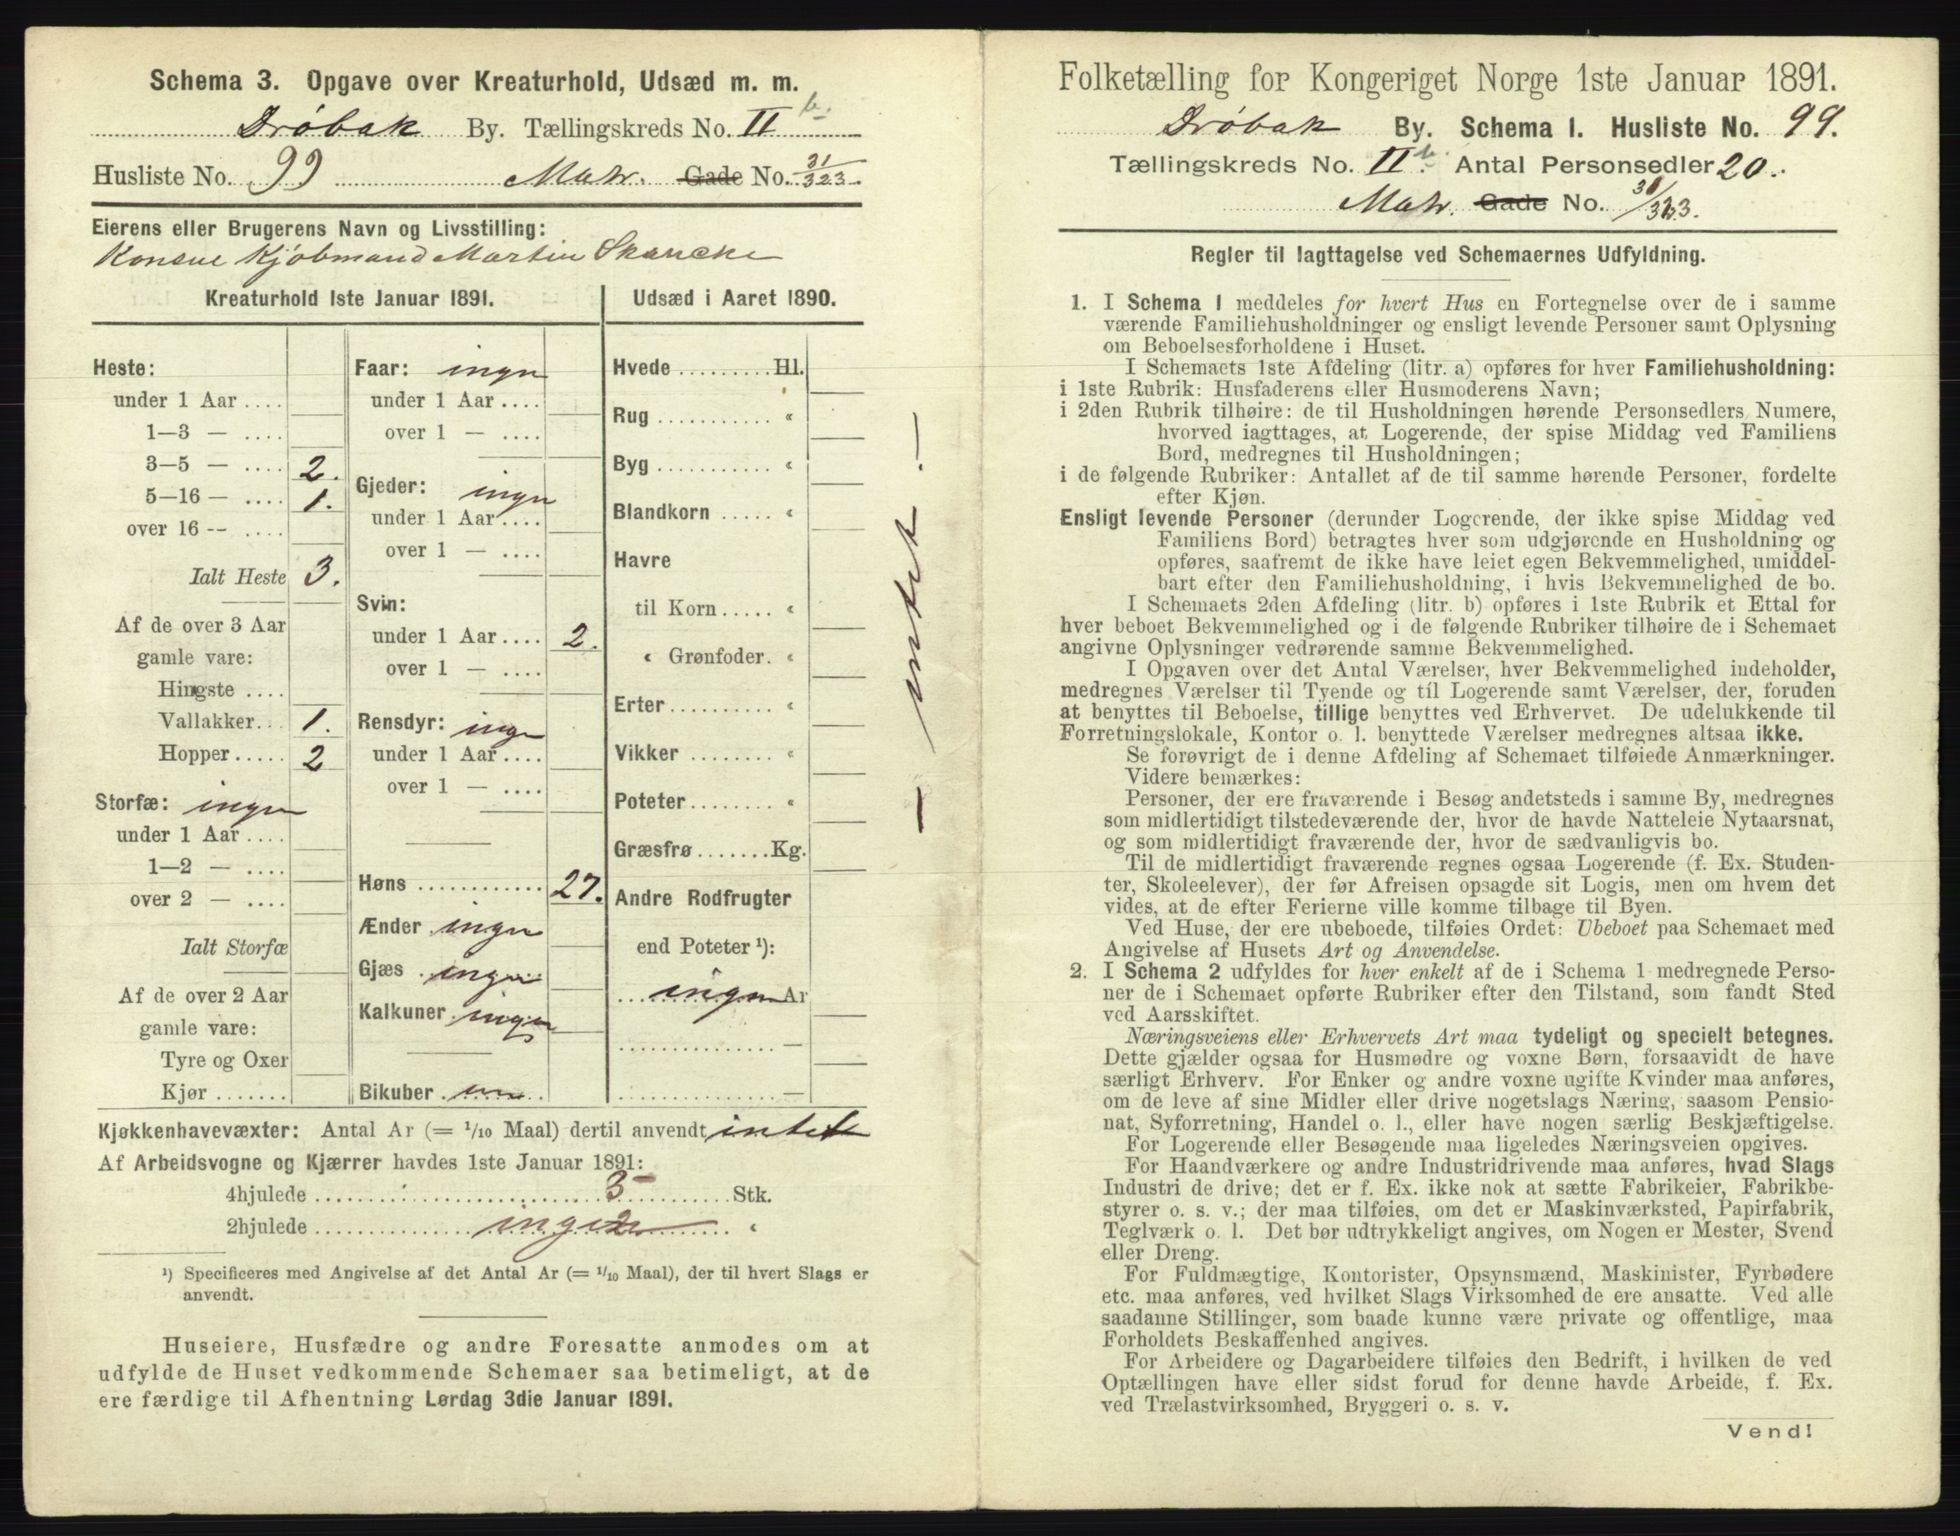 Schema 3. Opgave over Kreaturhold, Udsæd m. m.
Drøbak By. Tællingskreds No. II b.
Husliste No. 99 Matr. Gade No. 31/323
Eierens eller Brugerens Navn og Livsstilling:
Konsul Kjøbmand Martin Skancke
Kreaturhold 1ste Januar 1891.
Heste:
under 1 Aar ....
1—3 — ....
3—5 — .... 2.
5—16 — .... 1.
over 16 -- ....
Ialt Heste 3.
Af de over 3 Aar
gamle vare:
Hingste ....
Vallakker... 1.
Hopper..... 2
Storfæ: ingen
under 1 Aar ....
1—2 — ....
over 2 — ....
Ialt Storfæ
Af de over 2 Aar
gamle vare:
Tyre og Oxer
Kjør .......
Faar: ingen
under 1 Aar ....
over 1 — ....
Gjeder: ingen
under 1 Aar....
over 1 — ....
Svin:
under 1 Aar.... 2.
over 1 — ....
Rensdyr: inge
under 1 Aar....
over 1 — ....
Høns ............ 27.
Ænder ingen
Gjæs ingen
Kalkuner ingen
Bikuber
Udsæd i Aaret 1890.
Hvede .........Hl.
Rug ........... «
Byg ........... «
Blandkorn ..... «
Havre
til Korn ..... «
« Grønfoder. «
Erter ......... «
Vikker ........ «
Poteter........ «
Græsfrø.......Kg.
Andre Rodfrugter
end Poteter ¹):
ingen Ar
—
—
— intet. —
Kjøkkenhavevæxter: Antal Ar (= 1/10 Maal) dertil anvendt intet
Af Arbeidsvogne og Kjærrer havdes 1ste Januar 1891:
4hjulede ........ 3 ........ Stk.
2hjulede ........ ingen ........ «
¹) Specificeres med Angivelse af det Antal Ar (= 1/10 Maal), der til hvert Slags er
anvendt.
Huseiere, Husfædre og andre Foresatte anmodes om at
udfylde de Huset vedkommende Schemaer saa betimeligt, at de
ere færdige til Afhentning Lørdag 3die Januar 1891.
Folketælling for Kongeriget Norge 1ste Januar 1891.
Drøbak By. Schema 1. Husliste No. 99.
Tællingskreds No. II b. Antal Personsedler 20.
Matr. Gade No. 31/323.
Regler til Iagttagelse ved Schemaernes Udfyldning.
1. I Schema 1 meddeles for hvert Hus en Fortegnelse over de i samme
værende Familiehusholdninger og ensligt levende Personer samt Oplysning
om Beboelsesforholdene i Huset.
I Schemaets 1ste Afdeling (litr. a) opføres for hver Familiehusholdning:
i 1ste Rubrik: Husfaderens eller Husmoderens Navn;
i 2den Rubrik tilhøire: de til Husholdningen hørende Personsedlers Numere,
hvorved iagttages, at Logerende, der spise Middag ved Familiens
Bord, medregnes til Husholdningen;
i de følgende Rubriker: Antallet af de til samme hørende Personer, fordelte
efter Kjøn.
Ensligt levende Personer (derunder Logerende, der ikke spise Middag ved
Familiens Bord) betragtes hver som udgjørende en Husholdning og
opføres, saafremt de ikke have leiet egen Bekvemmelighed, umiddel-
bart efter den Familiehusholdning, i hvis Bekvemmelighed de bo.
I Schemaets 2den Afdeling (litr. b) opføres i 1ste Rubrik et Ettal for
hver beboet Bekvemmelighed og i de følgende Rubriker tilhøire de i Schemaet
angivne Oplysninger vedrørende samme Bekvemmelighed.
I Opgaven over det Antal Værelser, hver Bekvemmelighed indeholder,
medregnes Værelser til Tyende og til Logerende samt Værelser, der, foruden
at benyttes til Beboelse, tillige benyttes ved Erhvervet. De udelukkende til
Forretningslokale, Kontor o. l. benyttede Værelser medregnes altsaa ikke.
Se forøvrigt de i denne Afdeling af Schemaet tilføiede Anmærkninger.
Videre bemærkes:
Personer, der ere fraværende i Besøg andetsteds i samme By, medregnes
som midlertidigt tilstedeværende der, hvor de havde Natteleie Nytaarsnat,
og som midlertidigt fraværende der, hvor de sædvanligvis bo.
Til de midlertidigt fraværende regnes ogsaa Logerende (f. Ex. Studen-
ter, Skoleelever), der før Afreisen opsagde sit Logis, men om hvem det
vides, at de efter Ferierne ville komme tilbage til Byen.
Ved Huse, der ere ubeboede, tilføies Ordet: Ubeboet paa Schemaet med
Angivelse af Husets Art og Anvendelse.
2. I Schema 2 udfyldes for hver enkelt af de i Schema 1 medregnede Perso-
ner de i Schemaet opførte Rubriker efter den Tilstand, som fandt Sted
ved Aarsskiftet.
Næringsveiens eller Erhvervets Art maa tydeligt og specielt betegnes.
Dette gjælder ogsaa for Husmødre og voxne Børn, forsaavidt de have
særligt Erhverv. For Enker og andre voxne ugifte Kvinder maa anføres,
om de leve af sine Midler eller drive nogetslags Næring, saasom Pensio-
nat, Syforretning, Handel o. l., eller have nogen særlig Beskjæftigelse.
For Logerende eller Besøgende maa ligeledes Næringsveien opgives.
For Haandværkere og andre Industridrivende maa anføres, hvad Slags
Industri de drive; det er f. Ex. ikke nok at sætte Fabrikeier, Fabrikbe-
styrer o. s. v.; der maa tilføies, om det er Maskinværksted, Papirfabrik,
Teglværk o. l. Det bør udtrykkeligt angives, om Nogen er Mester, Svend
eller Dreng.
For Fuldmægtige, Kontorister, Opsynsmænd, Maskinister, Fyrbødere
etc. maa anføres, ved hvilket Slags Virksomhed de ere ansatte. Ved alle
saadanne Stillinger, som baade kunne være private og offentlige, maa
Forholdets Beskaffenhed angives.
For Arbeidere og Dagarbeidere tilføies den Bedrift, i hvilken de ved
Optællingen have eller sidst forud for denne havde Arbeide, f. Ex.
ved Trælastvirksomhed, Bryggeri o. s. v.
Vend!